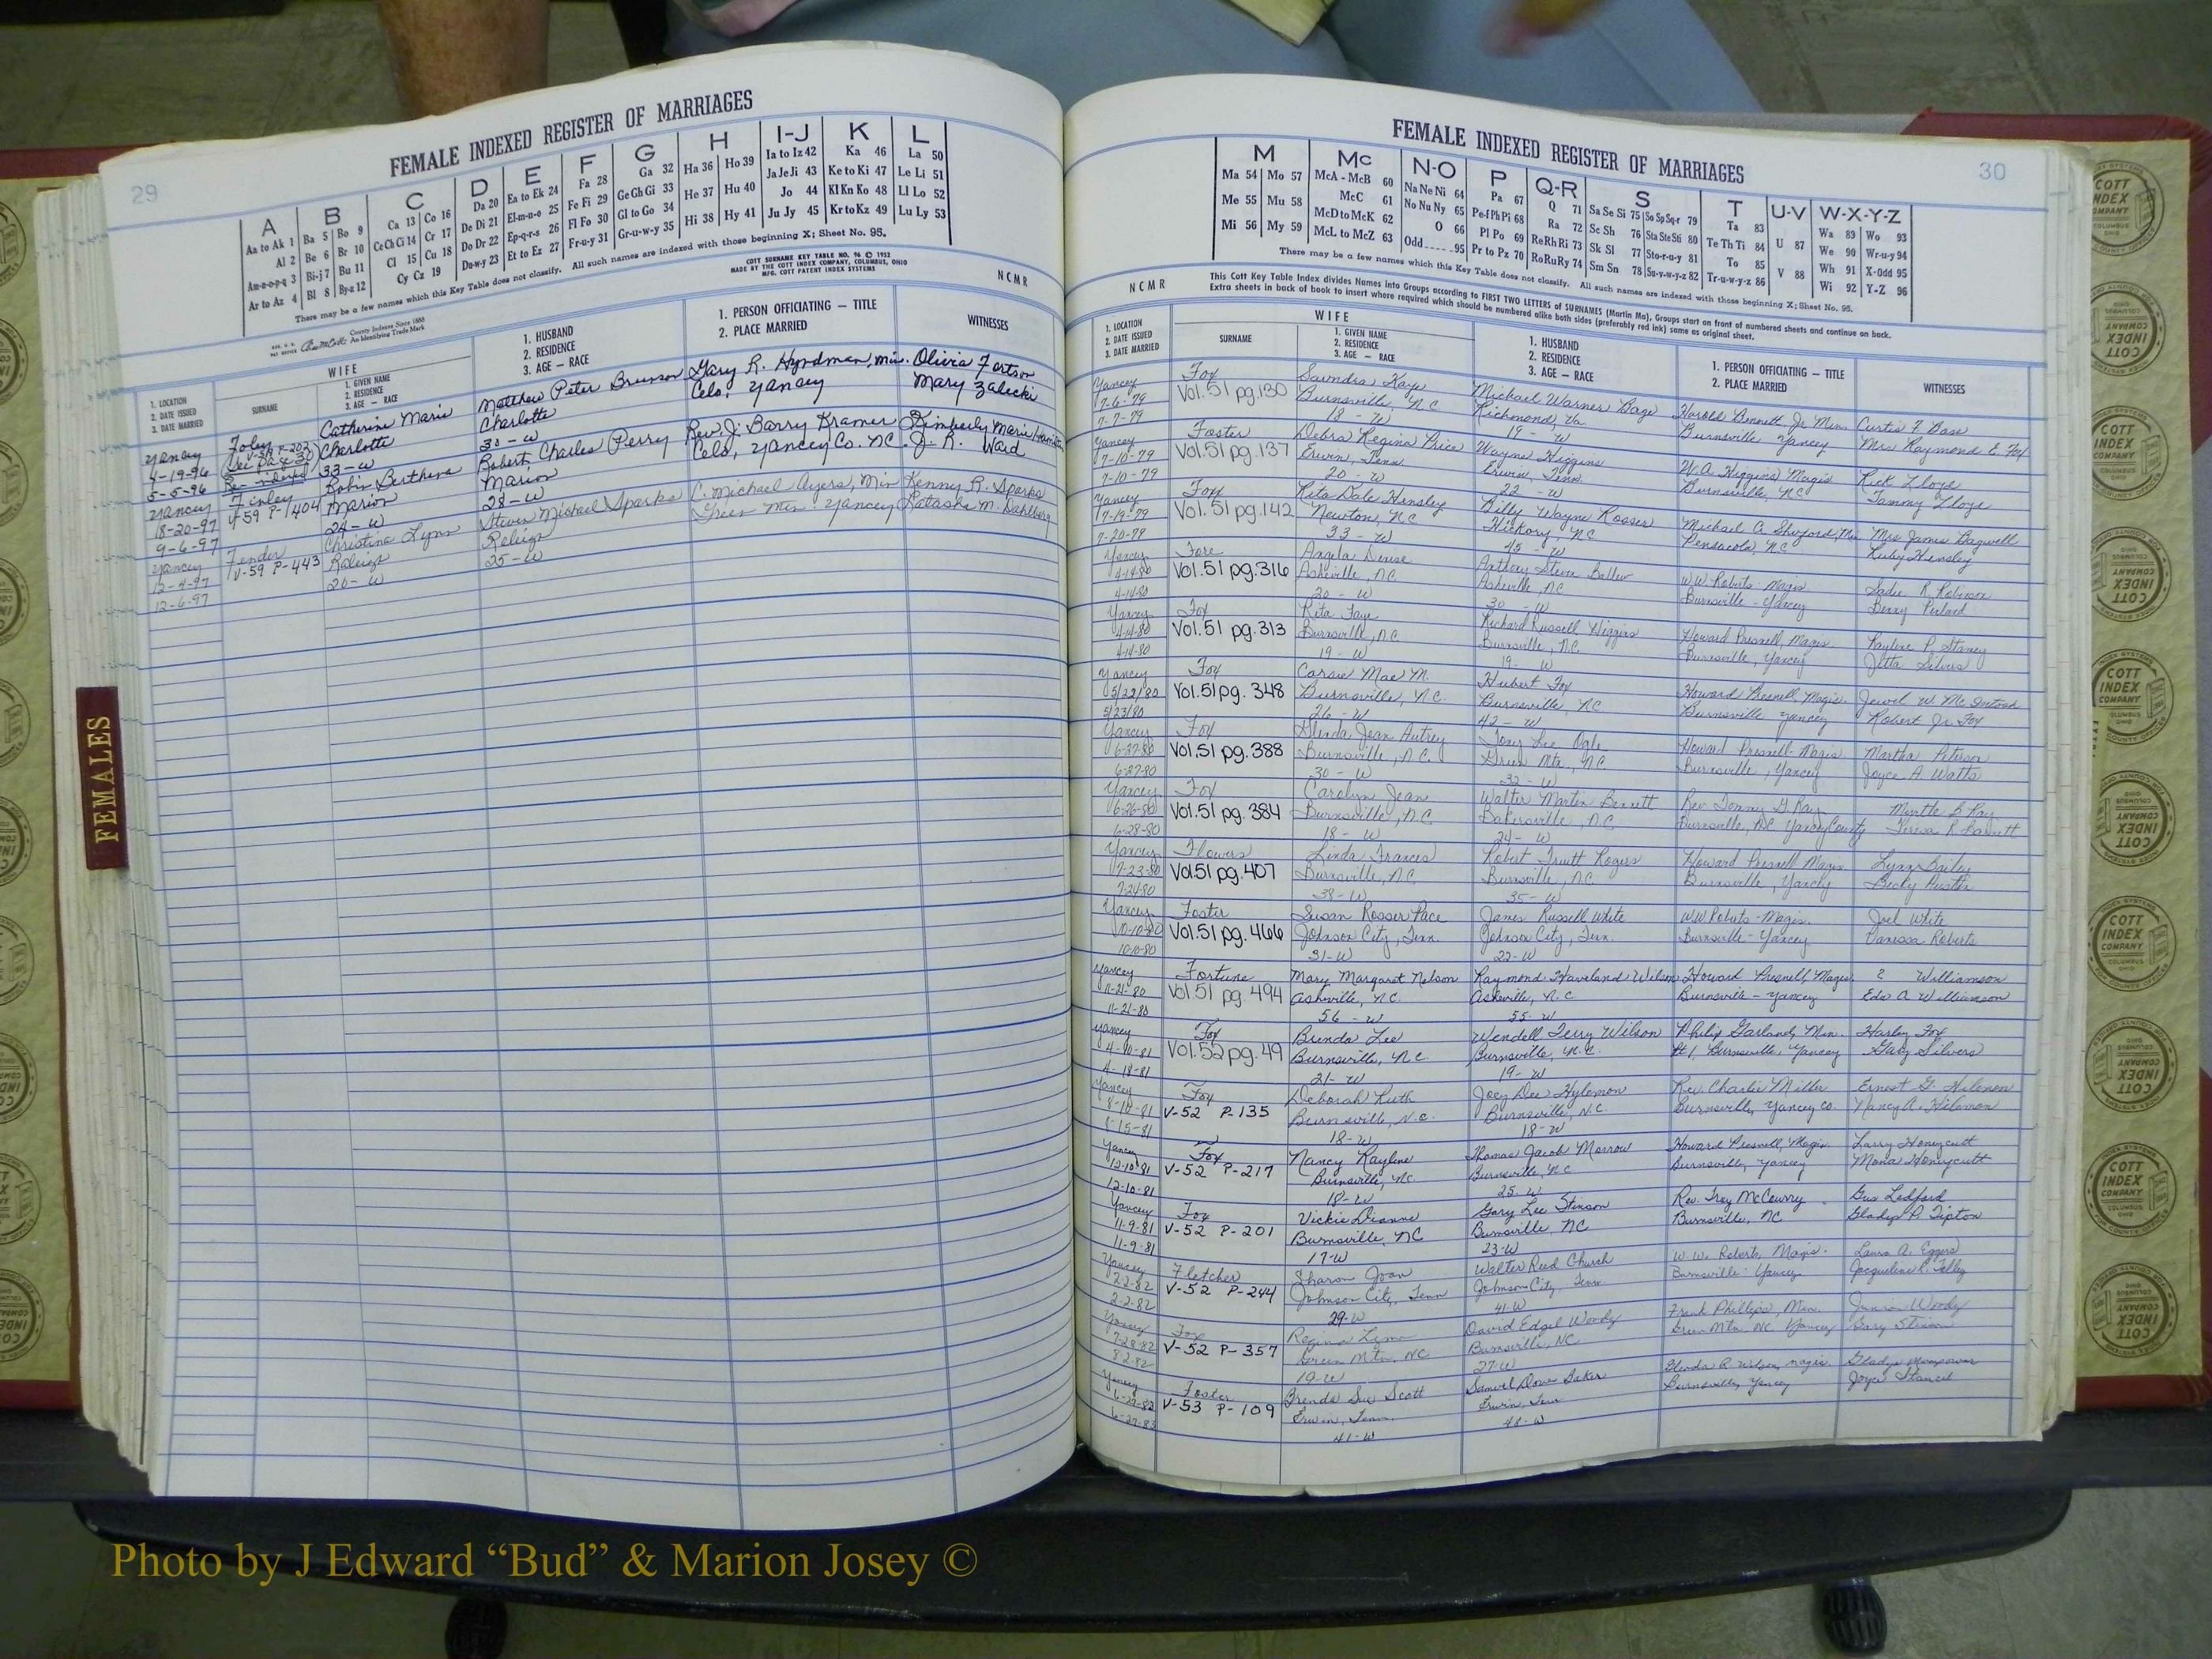 29
FEMALE INDEXED REGISTER OF MARRIAGES
A B C D E F G H I-J K L
Aa to Ak 1 Ba 5 Bo 9 Ca 13 Co 16 Da 20 Ea to Ek 24 Fa 28 Ga 32 Ha 36 Ho 39 Ia to Iz 42 Ka 46 La 50
Al 2 Be 6 Br 10 Ce Ch Ci 14 Cr 17 De Di 21 El-m-n-o 25 Fe Fi 29 Ge Gh Gi 33 He 37 Hu 40 Ja Je Ji 43 Ke to Ki 47 Le Li 51
Am-n-o-p-q 3 Bi-j 7 Bu 11 Cl 15 Cu 18 Do Dr 22 Ep-q-r-s 26 Fl Fo 30 Gl to Go 34 Hi 38 Hy 41 Jo 44 Kl Kn Ko 48 Ll Lo 52
Ar to Az 4 Bl 8 By-z 12 Cy Cz 19 Du-w-y 23 Et to Ez 27 Fr-u-y 31 Gr-u-w-y 35 Ju Jy 45 Kr to Kz 49 Lu Ly 53
There may be a few names which this Key Table does not classify. All such names are indexed with those beginning X; Sheet No. 95.
COTT SURNAME KEY TABLE NO. 96 © 1952
MADE BY THE COTT INDEX COMPANY, COLUMBUS, OHIO
MFG. COTT PATENT INDEX SYSTEMS
NCMR
County Indexes Since 1888
An Identifying Trade Mark
1. LOCATION
2. DATE ISSUED
3. DATE MARRIED
WIFE
SURNAME
1. GIVEN NAME
2. RESIDENCE
3. AGE — RACE
1. HUSBAND
2. RESIDENCE
3. AGE — RACE
1. PERSON OFFICIATING — TITLE
2. PLACE MARRIED
WITNESSES
Yancey Foley Catherine Marie Matthew Peter Brunson Gary R. Hyndman, min. Olivia Fortson
4-19-96 Charlotte Charlotte Celo, Yancey Mary Zalecki
5-5-96 33-W 30-W
Yancey Finley Robin Berthena Robert Charles Perry Rev. J. Barry Kramer Kimberly Marie
18-20-97 V-59 P-404 Marion Marion Celo, Yancey Co. NC J. R. Ward
9-6-97 24-W 28-W
Yancey Fender Christina Lynn Steven Michael Sparks C. Michael Ayers, Min Kenny R. Sparks
12-4-97 V-59 P-443 Raleigh Raleigh Green Mtn. Yancey Latasha M. Dahlberg
12-6-97 26-W 25-W
FEMALES
30
FEMALE INDEXED REGISTER OF MARRIAGES
M Mc N-O P Q-R S T U-V W-X-Y-Z
Ma 54 Mo 57 McA - McB 60 Na Ne Ni 64 Pa 67 Q 71 Sa Se Si 75 So Sp Sq-r 79 Ta 83 U 87 Wa 89 Wo 93
Me 55 Mu 58 McC 61 No Nu Ny 65 Pe-f Ph Pi 68 Ra 72 Sc Sh 76 Sta Ste Sti 80 Te Th Ti 84 V 88 We 90 Wr-u-y 94
Mi 56 My 59 McD to McK 62 O 66 Pl Po 69 Re Rh Ri 73 Sk Sl 77 Sto-r-u-y 81 To 85 Wh 91 X-Odd 95
McL to McZ 63 Odd 95 Pr to Pz 70 Ro Ru Ry 74 Sm Sn 78 Su-v-w-y-z 82 Tr-u-w-y-z 86 Wi 92 Y-Z 96
There may be a few names which this Key Table does not classify. All such names are indexed with those beginning X; Sheet No. 95.
NCMR
This Cott Key Table Index divides Names into Groups according to FIRST TWO LETTERS of SURNAMES (Martin Ma), Groups start on front of numbered sheets and continue on back.
Extra sheets in back of book to insert where required which should be numbered alike both sides (preferably red ink) same as original sheet.
1. LOCATION
2. DATE ISSUED
3. DATE MARRIED
WIFE
SURNAME
1. GIVEN NAME
2. RESIDENCE
3. AGE — RACE
1. HUSBAND
2. RESIDENCE
3. AGE — RACE
1. PERSON OFFICIATING — TITLE
2. PLACE MARRIED
WITNESSES
Yancey Fox Saundra Kaye Michael Warner Bage Harold Bennett Jr Min. Curtis T. Base
7-6-79 Vol. 51 pg. 130 Burnsville, NC Richmond, Va. Burnsville Yancey Mrs Raymond E. Fox
7-7-79 18 - W 19 - W
Yancey Foster Debra Regina Price Wayne Higgins W.A. Higgins, Magis Rick Lloyd
7-10-79 Vol. 51 pg. 137 Erwin, Tenn Erwin, Tenn. Burnsville, NC Tammy Lloyd
7-10-79 20 - W 22 - W
Yancey Foxx Rita Dale Hensley Billy Wayne Rosser Michael A. Shuford, Min Mrs James Bagwell
7-19-79 Vol. 51 pg. 142 Newton, NC Hickory, NC Pensacola, NC Ruby Hensley
7-20-79 33 - W 45 - W
Yancey Fore Angela Denise Anthony Steven Ballew W.W. Roberts - Magis Sadie R. Robinson
4-14-80 Vol. 51 pg. 316 Asheville, NC Asheville, NC Burnsville - Yancey
4-14-80 20 - W 30 - W
Yancey Fox Rita Faye Richard Russell Higgins Howard Presnell, Magis.
4-14-80 Vol. 51 pg. 313 Burnsville, NC Burnsville, NC Burnsville, Yancey
4-14-80 19 - W 19 - W
Yancey Fox Carsie Mae M. Hubert Fox Howard Presnell, Magis. Jewel W. McIntosh
5/22/80 Vol. 51 pg. 348 Burnsville, NC. Burnsville, NC Burnsville Yancey Robert Jr. Fox
5/23/80 26 - W 42 - W
Yancey Fox Glenda Jean Autrey Tony Lee Ogle Howard Presnell - Magis Martha Peterson
6-27-80 Vol. 51 pg. 388 Burnsville, N.C. Green Mtn., NC Burnsville, Yancey Joyce A. Watts
6-27-80 30 - W 32 - W
Yancey Fox Carolyn Jean Walter Martin Bennett Rev Tommy G Ray Myrtle B Ray
6-26-80 Vol. 51 pg. 384 Burnsville, N.C. Bakersville, NC Burnsville, NC Yancey County
6-28-80 18 - W 24 - W
Yancey Flowers Linda Frances Robert Truitt Rogers Howard Presnell Magis. Lynn Bailey
7-23-80 Vol. 51 pg. 407 Burnsville, NC Burnsville, NC Burnsville, Yancey Becky Austin
7-24-80 38 - W 35 - W
Yancey Foster Susan Rosser Pace James Russell White W.W Roberts - Magis. Joel White
10-10-80 Vol. 51 pg. 466 Johnson City, Tenn. Johnson City, Tenn. Burnsville - Yancey Vanessa Roberts
10-10-80 31-W 22-W
Yancey Fortune Mary Margaret Nelson Raymond Haveland Wilson Howard Presnell, Magis. ? Williamson
11-21-80 Vol. 51 pg. 494 Asheville, N.C. Asheville, N.C Burnsville - Yancey Edo A Williamson
11-21-80 56 - W 55 - W
Yancey Fox Brenda Lee Wendell Terry Wilson Philip Garland, Min. Harley Fox
4-10-81 Vol. 52 pg. 49 Burnsville, NC Burnsville, N.C. Rt 1, Burnsville, Yancey Gary Silvers
4-18-81 21-W 19-W
Yancey Fox Deborah Ruth Joey Dee Hylemon Rev. Charlie Miller Ernest G. Hilemon
8-10-81 V-52 P-135 Burnsville, N.C. Burnsville, N.C. Burnsville, Yancey Co. Nancy A. Hilemon
8-15-81 18-W 18-W
Yancey Fox Nancy Kayline Thomas Jacob Morrow Howard Presnell, Magis. Larry Honeycutt
12-10-81 V-52 P-217 Burnsville, NC. Burnsville, NC Burnsville, Yancey Mona Honeycutt
12-10-81 18-W 25-W
Yancey Fox Vickie Dianne Gary Lee Stinson Rev. Troy McCourry Gus Ledford
11-9-81 V-52 P-201 Burnsville, NC Burnsville, NC Burnsville, NC Gladys P. Tipton
11-9-81 17-W 23-W
Yancey Fletcher Sharon Joan Walter Reed Church W.W. Roberts, Magis. Laura A. Eggers
2-2-82 V-52 P-244 Johnson City, Tenn Johnson City, Tenn. Burnsville - Yancey Jacqueline R. Talley
2-2-82 29-W 41-W
Yancey Fox Regina Lynn David Edgel Woody Frank Phillips, Min. Junior Woody
7-28-82 V-52 P-357 Green Mtn, NC Burnsville, NC Green Mtn. NC Yancey Gary Stinson
8-2-82 19-W 27-W
Yancey Foster Brenda Sue Scott Samuel Baker Glenda R. Wilson, magis. Gladys
V-53 P-109 Erwin, Tenn. Erwin, Tenn Burnsville, Yancey Joyce Stancil
41-W 48-W
COTT INDEX COMPANY
COLUMBUS OHIO
Photo by J Edward “Bud” & Marion Josey ©